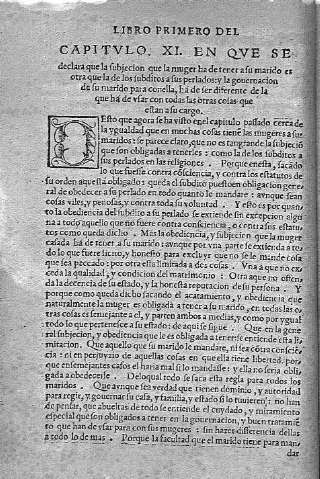 LIBRO PRIMERO DEL
CAPITVLO. XI. EN QVE SE
declara que la subjecion que la muger ha de tener a su marido es
otra que la de los subditos a sus perlados: y la gouernacion
de su marido para con ella, há de ser diferente de la
que há de vsar con todas las otras cosas que
estan a su cargo.
DEsto que agora se ha visto en el capitulo passado cerca de
la ygualdad que en muchas cosas tiene las mugeres a sus
maridos: se parece claro, que no es tan grande la subjeció
que son obligadas a tenerles: como la de los subditos a
sus perlados en las religiones. Porque en esta, sacádo
lo que fuesse contra cósciencia, y contra los estatutos de
su orden aquel está obligado: queda el subdito puesto en obligacion gene-
ral de obedecer a su perlado en todo quanto le mandare: aunque sean
cosas viles, y penosas, y contra toda su voluntad. Y esto es por quan-
to la obediencia del subdito a su perlado se extiende sin excepcion algu-
na a todo aquello que no fuere contra consciencia, o contra sus estatu-
tos como queda dicho. Mas la obediencia, y subjecion que la muger
casada há de tener a su marido: aunque por vna parte se extienda a to-
do lo que fuere licito, y honesto para excluyr que no se le mande cosa
que sea peccado: por otra esta limitada a dos cosas. Vna a que no ex-
ceda la qualidad, y condicion del matrimonio: Otra a que no ofen-
da la decencia de su estado, y la honesta reputacion de su persona. Y
porque como queda dicho sacando el acatamiento, y obediencia que
naturalmente la muger es obligada a tener a su marido, en todas las o-
tras cosas es semejante a el, y parten ambos a medias, y como por ygual
todo lo que pertenesce a su estado: de aqui se sigue. Que en la gene-
ral subjecion, y obediencia que le es obligada a tener se entiende esta li-
mitacion. Que aquello que su marido le mandare, ni sea cótra consciē-
cia: ni en perjuyzio de aquellas cosas en que ella tiene libertad, por-
que en semejantes cados el haria mal si lo mandasse: y ella no seria obli-
gada a obedecerle. Delo qual todo se saca esta regla para todos los
maridos. Que aunque sea verdad que tienen dominio, y autoridad
para regir, y gouernar su casa, y familia, y estado si lo tuuieren: no han
de pensar, que abueltas de todo se entiende el cuydado, y miramiento
especial que son obligados a tener en la gouernacion, y buen tratamiē-
to que han de vsar para con sus mugeres: sin hazer differencia dellas
a todo lo de mas. Porque la facultad que el marido tiene para man-
dar